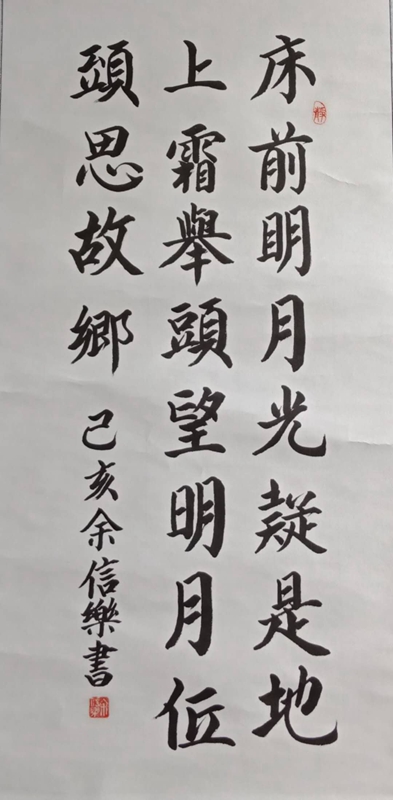 床前明月光疑是地
上霜舉頭望明月低
頭思故鄉
己亥余信樂書